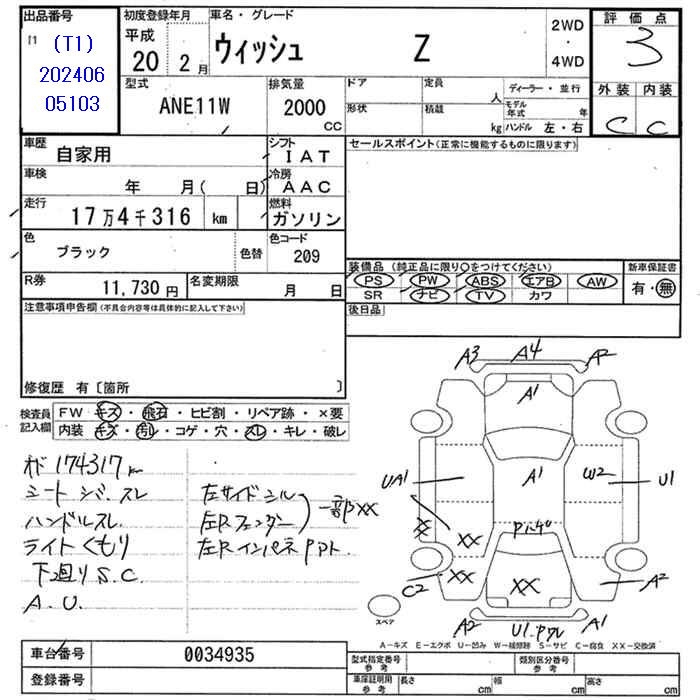 出品番号
(T1)
202406
05103
初度登録年月
平成
20 2月
車名・グレード
ウィッシュ Z
2WD
・
4WD
評価点
3
外装 内装
C C
型式
ANE11W
排気量
2000
CC
ドア 定員 人
形状 積載 kg
ディーラー・並行
モデル年式 年
ハンドル 左・右
車歴
自家用
シフト
IAT
車検
年 月( 日)
冷房
AAC
走行
17万4千316 km
燃料
ガソリン
色
ブラック
色替
色コード
209
R券
11,730円
名変期限
月 日
セールスポイント(正常に機能するものに限ります)
装備品(純正品に限り○をつけてください)
PS PW ABS エアB AW
SR ナビ TV カワ
新車保証書
有・無
後日品
注意事項申告欄(不具合内容等は具体的に記入して下さい)
修復歴 有〔箇所 〕
検査員記入欄
FW キズ・飛石・ヒビ割・リペア跡・×要
内装 キズ・汚レ・コゲ・穴・スレ・キレ・破レ
174317km
シート シバ・スレ
ハンドルスレ
ライトくもり
下廻りS.C.
A.U.
左サイドシル
左Rフェンダー
一部XX
左Rインパネ
A3 A4 A2
A1
UA1 A1 W2 U1
XX XX
C2 XX XX A2
A2 U1 A1
スペア
A-キズ E-エクボ U-凹み W-補修跡 S-サビ C-腐食 XX-交換済
車台番号
0034935
登録番号
型式指定番号
参考
類別区分番号
参考
車庫証明用
参考
長さ cm 幅 cm 高さ cm